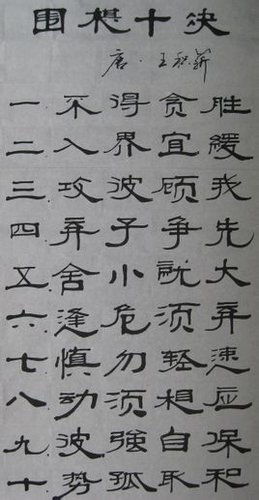 围棋十决
唐·王积薪
一 不得贪胜
二 入界宜緩
三 攻彼顾我
四 弃子争先
五 舍小就大
六 逢危须弃
七 慎勿轻速
八 动须相应
九 彼強自保
十 势孤取和